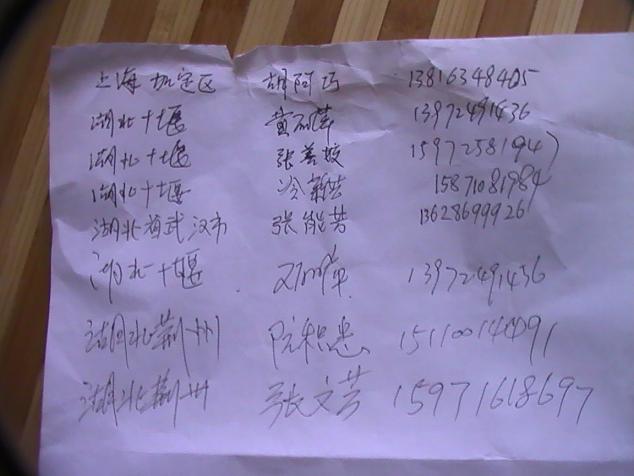 上海 加定区 胡阿巧 13816348405
湖北十堰 黄 13972491436
湖北十堰 张 15972581947
湖北十堰 冷 15871081984
湖北省武汉市 张能芳 13628699926
湖北十堰 13972491436
湖北荆州 阮积忠 15110014091
湖北荆州 张文芳 15971618697